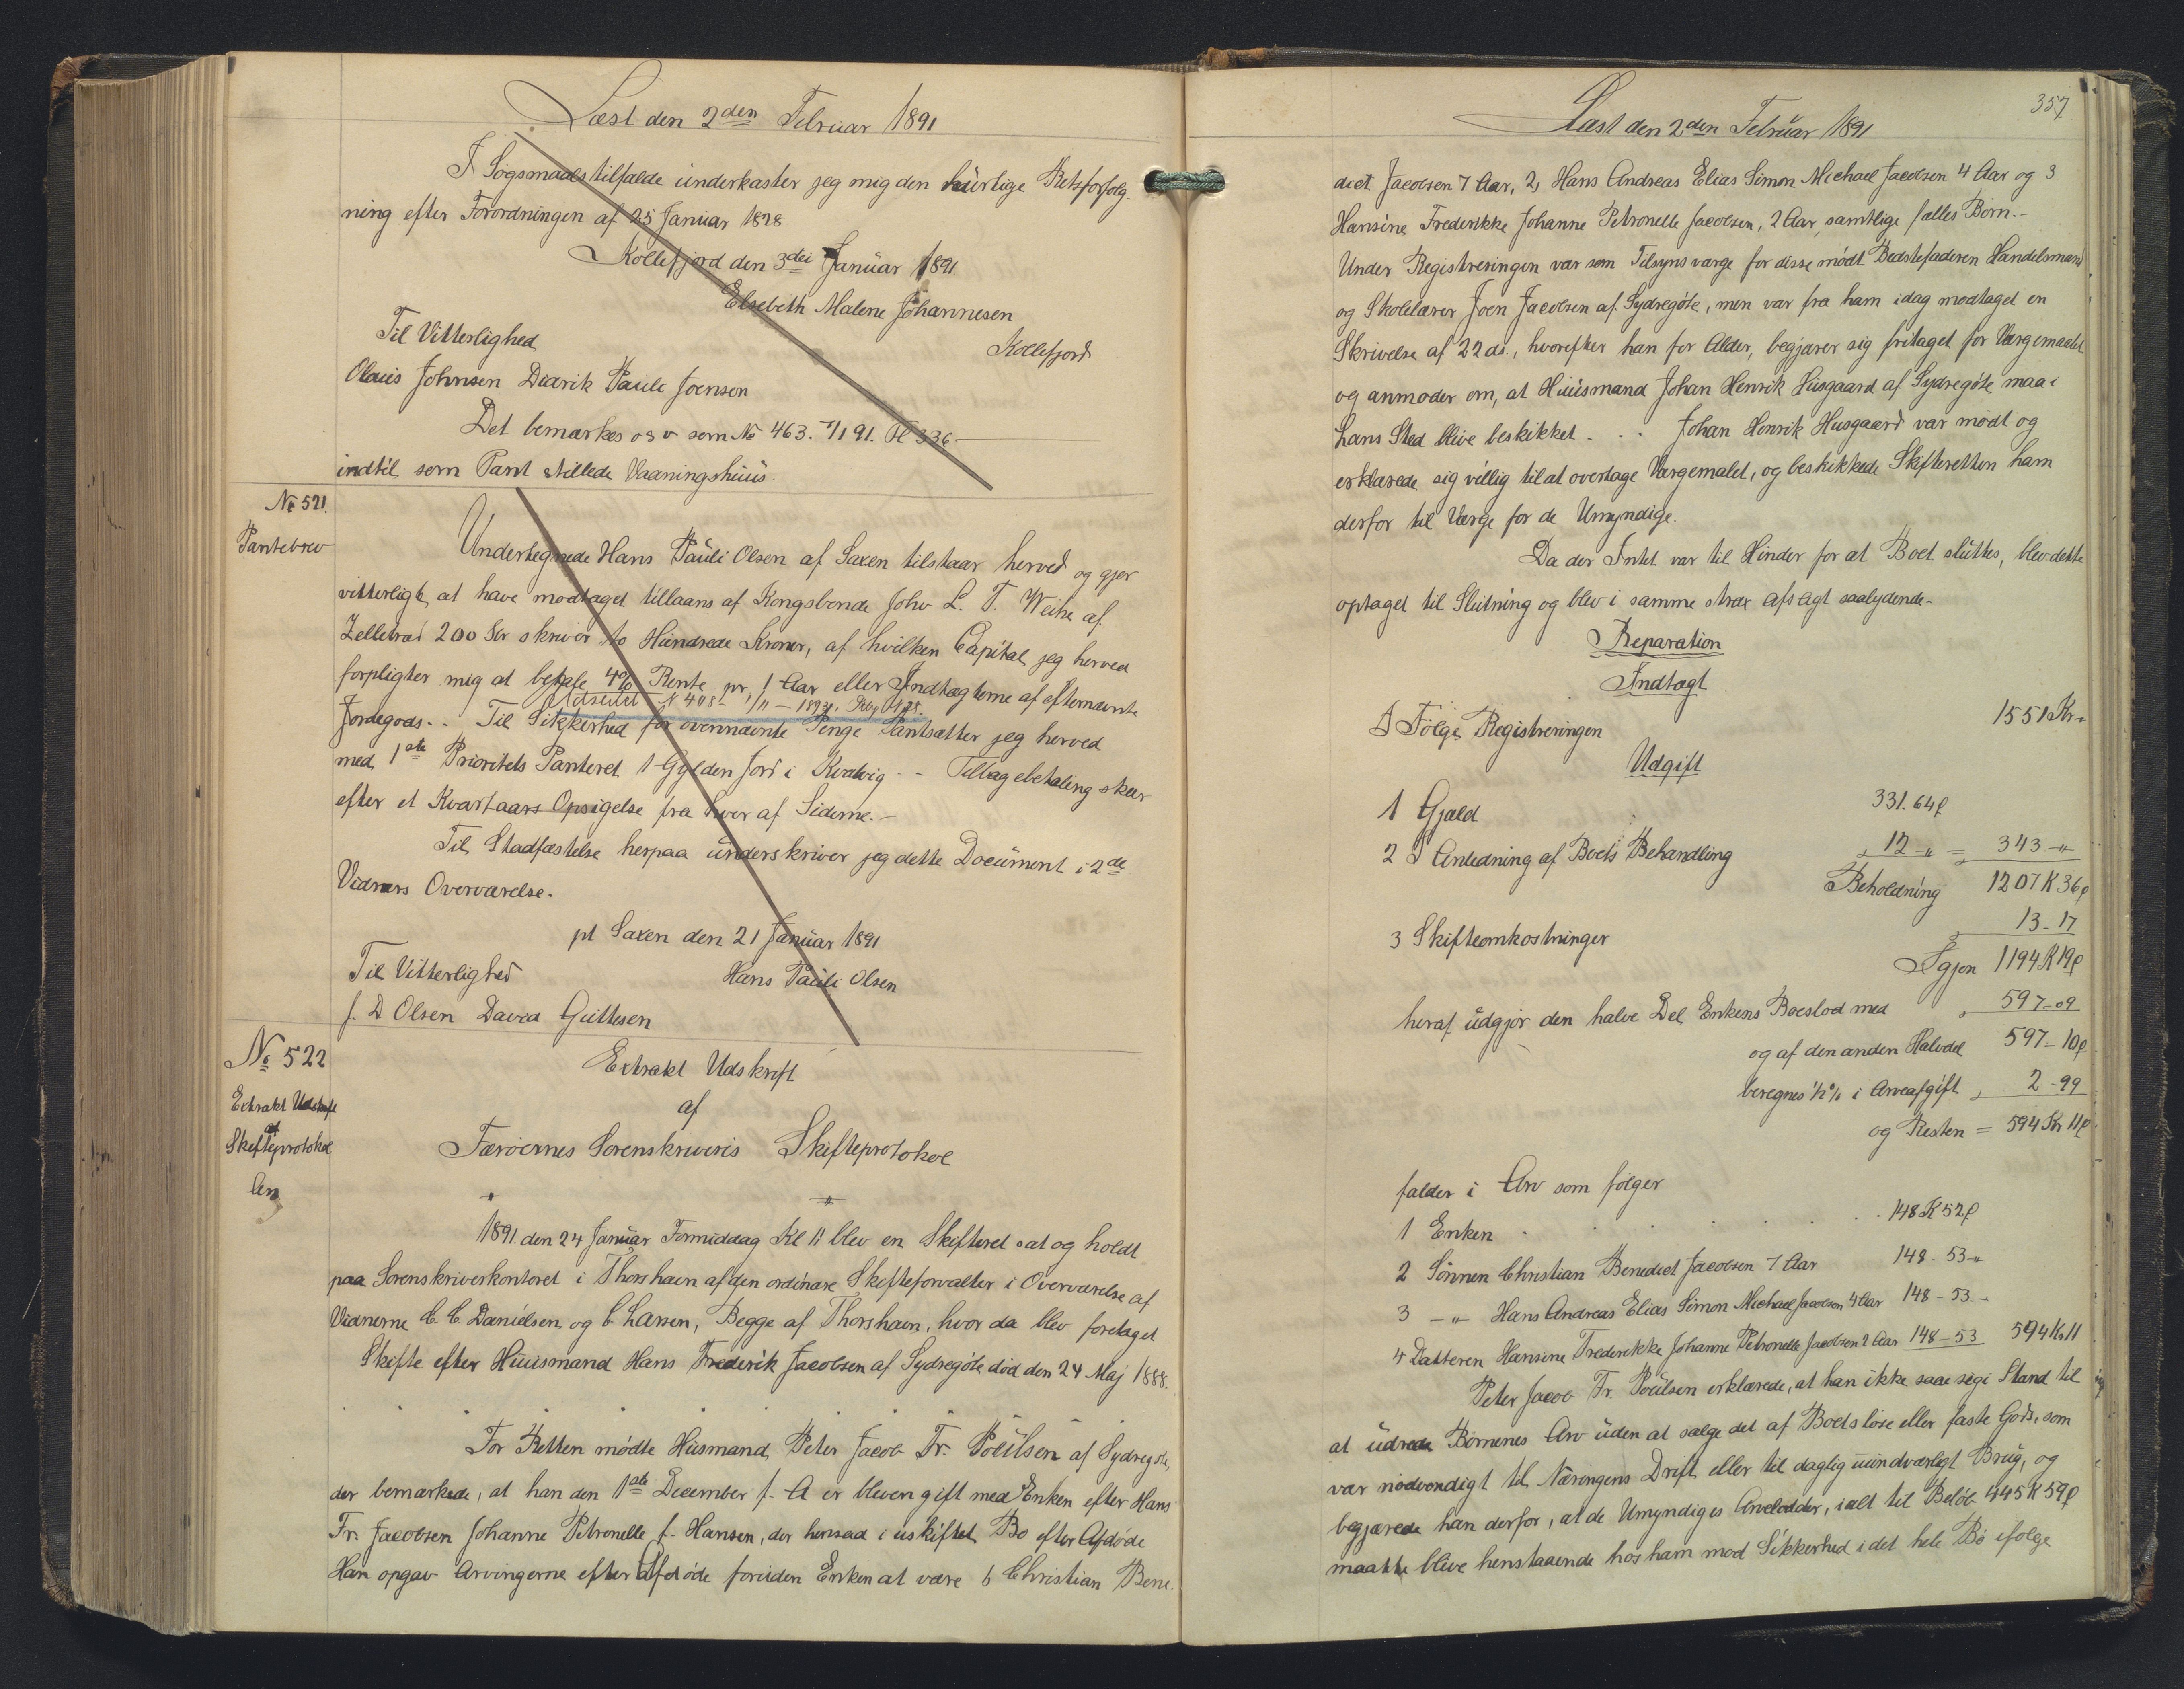 Læst den 2den Februar 1891
I Søgsmaalstilfælde underkaster jeg mig den hurtige Retsforfølg-
ning efter Forordningen af 25 Januar 1828
Kollefjord den 3die Januar 1891
Elsebeth Malene Johannesen
Kollefjord
Til Vitterlighed
Olaus Johnsen Didrik Pauli Joensen
Det bemærkes osv som No 463. 7/1 91. Fl 336 -
indtil som Pant stillede Vaaningshuus.
No 521.
Pantebrev
Undertegnede Hans Pauli Olsen af Saxen tilstaar herved og gjør
vitterligt, at have modtaget tillaans af Kongsbonde John L. T. Weihe af
Zelletræd 200 Kr skriver to Hundrede Kroner, af hvilken Capital jeg herved
forpligter mig at betale 4% Rente pr. 1 Aar eller Indtægterne af efternævnte
Udslettet N 405 - 1/11 - 1893.
Jordegods. - Til Sikkerhed for ovennævnte Penge Pantsætter jeg herved
med 1ste Prioritets Panteret 1 Gylden Jord i Kvalvig - - Tilbagebetaling skeer
efter et Kvartaars Opsigelse fra hver af Siderne. -
Til Stadfæstelse herpaa underskriver jeg dette Document i 2de
Vidners Overværelse.
pt Saxen den 21 Januar 1891
Til Vitterlighed
Hans Pauli Olsen
J. D Olsen David Guttesen
No 522
Extrakt Udskrift
af
Skifteprotokol
Extrakt Udskrift
af
Færøernes Sorenskriveris Skifteprotokol
1891 den 24 Januar Formiddag Kl 11 blev en Skifteret sat og holdt
paa Sorenskriverkontoret i Thorshavn af den ordinære Skifteforvalter i Overværelse af
Vidnerne C. C. Danielsen og C Larsen, Begge af Thorshavn, hvor da blev foretaget
Skifte efter Huusmand Hans Frederik Jacobsen af Sydregøte død den 24 Maj 1888.
For Retten mødte Husmand Peter Jacob Fr. Poulsen af Sydregøte,
der bemærkede, at han den 1ste December f. A er bleven gift med Enken efter Hans
Fr. Jacobsen Johanne Petronelle f. Hansen, der hensad i uskiftet Bo efter Afdøde
Han opgav Arvingerne efter Afdøde foruden Enken at være 1, Christian Bene-
357
Læst den 2den Februar 1891
dict Jacobsen 7 Aar, 2, Hans Andreas Elias Simon Michael Jacobsen 4 Aar og 3
Hansine Frederikke Johanne Petronelle Jacobsen, 2 Aar, samtlige fælles Børn. -
Under Registreringen var som Tilsynsværge for disse mødt Bedstefaderen Handelsmand
og Skolelærer Joen Jacobsen af Sydregøte, men var fra ham idag modtaget en
Skrivelse af 22 ds., hvorefter han for Alder, begjærer sig fritaget for Værgemaalet
og anmoder om, at Huusmand Johan Henrik Husgaard af Sydregøte maa i
hans Sted blive beskikket. . . Johan Henrik Husgaard var mødt og
erklærede sig villig til at overtage Værgemalet, og beskikkede Skifteretten ham
derfor til Værge for de Umyndige.
Da der Intet var til Hinder for at Boet sluttes, blev dette
optaget til Slutning og blev i samme strax afsagt saalydende -
Reparation
Indtægt
I Følge Registreringen 1551 Kr -
Udgift
1 Gjæld 331. 64
2 I Anledning af Boets Behandling 12 - " = 343 - "
Beholdning 1207 K 36
3 Skifteomkostninger 13 - 17
Igjen 1194 K 19
heraf udgjør den halve Del Enkens Boeslod med 597 - 09
og af den anden Halvdel 597 - 10
beregnes 1/2 % i Arveafgift 2 - 99
og Resten = 594 Kr 11
falder i Arv som følger
1 Enken . . . . 148 K 52
2 Sønnen Christian Benedict Jacobsen 7 Aar 148 - 53 -
3 - " Hans Andreas Elias Simon Michael Jacobsen 4 Aar 148 - 53 -
4 Datteren Hansine Frederikke Johanne Petronelle Jacobsen 2 Aar 148 - 53 594 Kr 11
Peter Jacob Fr. Poulsen erklærede, at han ikke saae sig i Stand til
at udrede Børnenes Arv uden at sælge det af Boets løse eller faste Gods, som
var nødvendigt til Næringens Drift eller til daglig uundværligt Brug, og
begjærede han derfor, at de Umyndiges Arvelodder, ialt til Beløb 445 K 59
maatte blive henstaaende hos ham mod Sikkerhed i det hele Bo ifølge